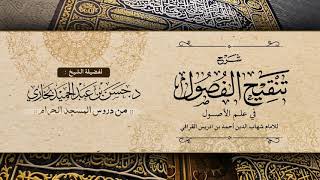 شرح
تنقيح الفصول
في علم الأصول
للإمام شهاب الدين أحمد بن إدريس القرافي
لفضيلة الشيخ :
د. حسن بن عبد الحميد بخاري
من دروس المسجد الحرام